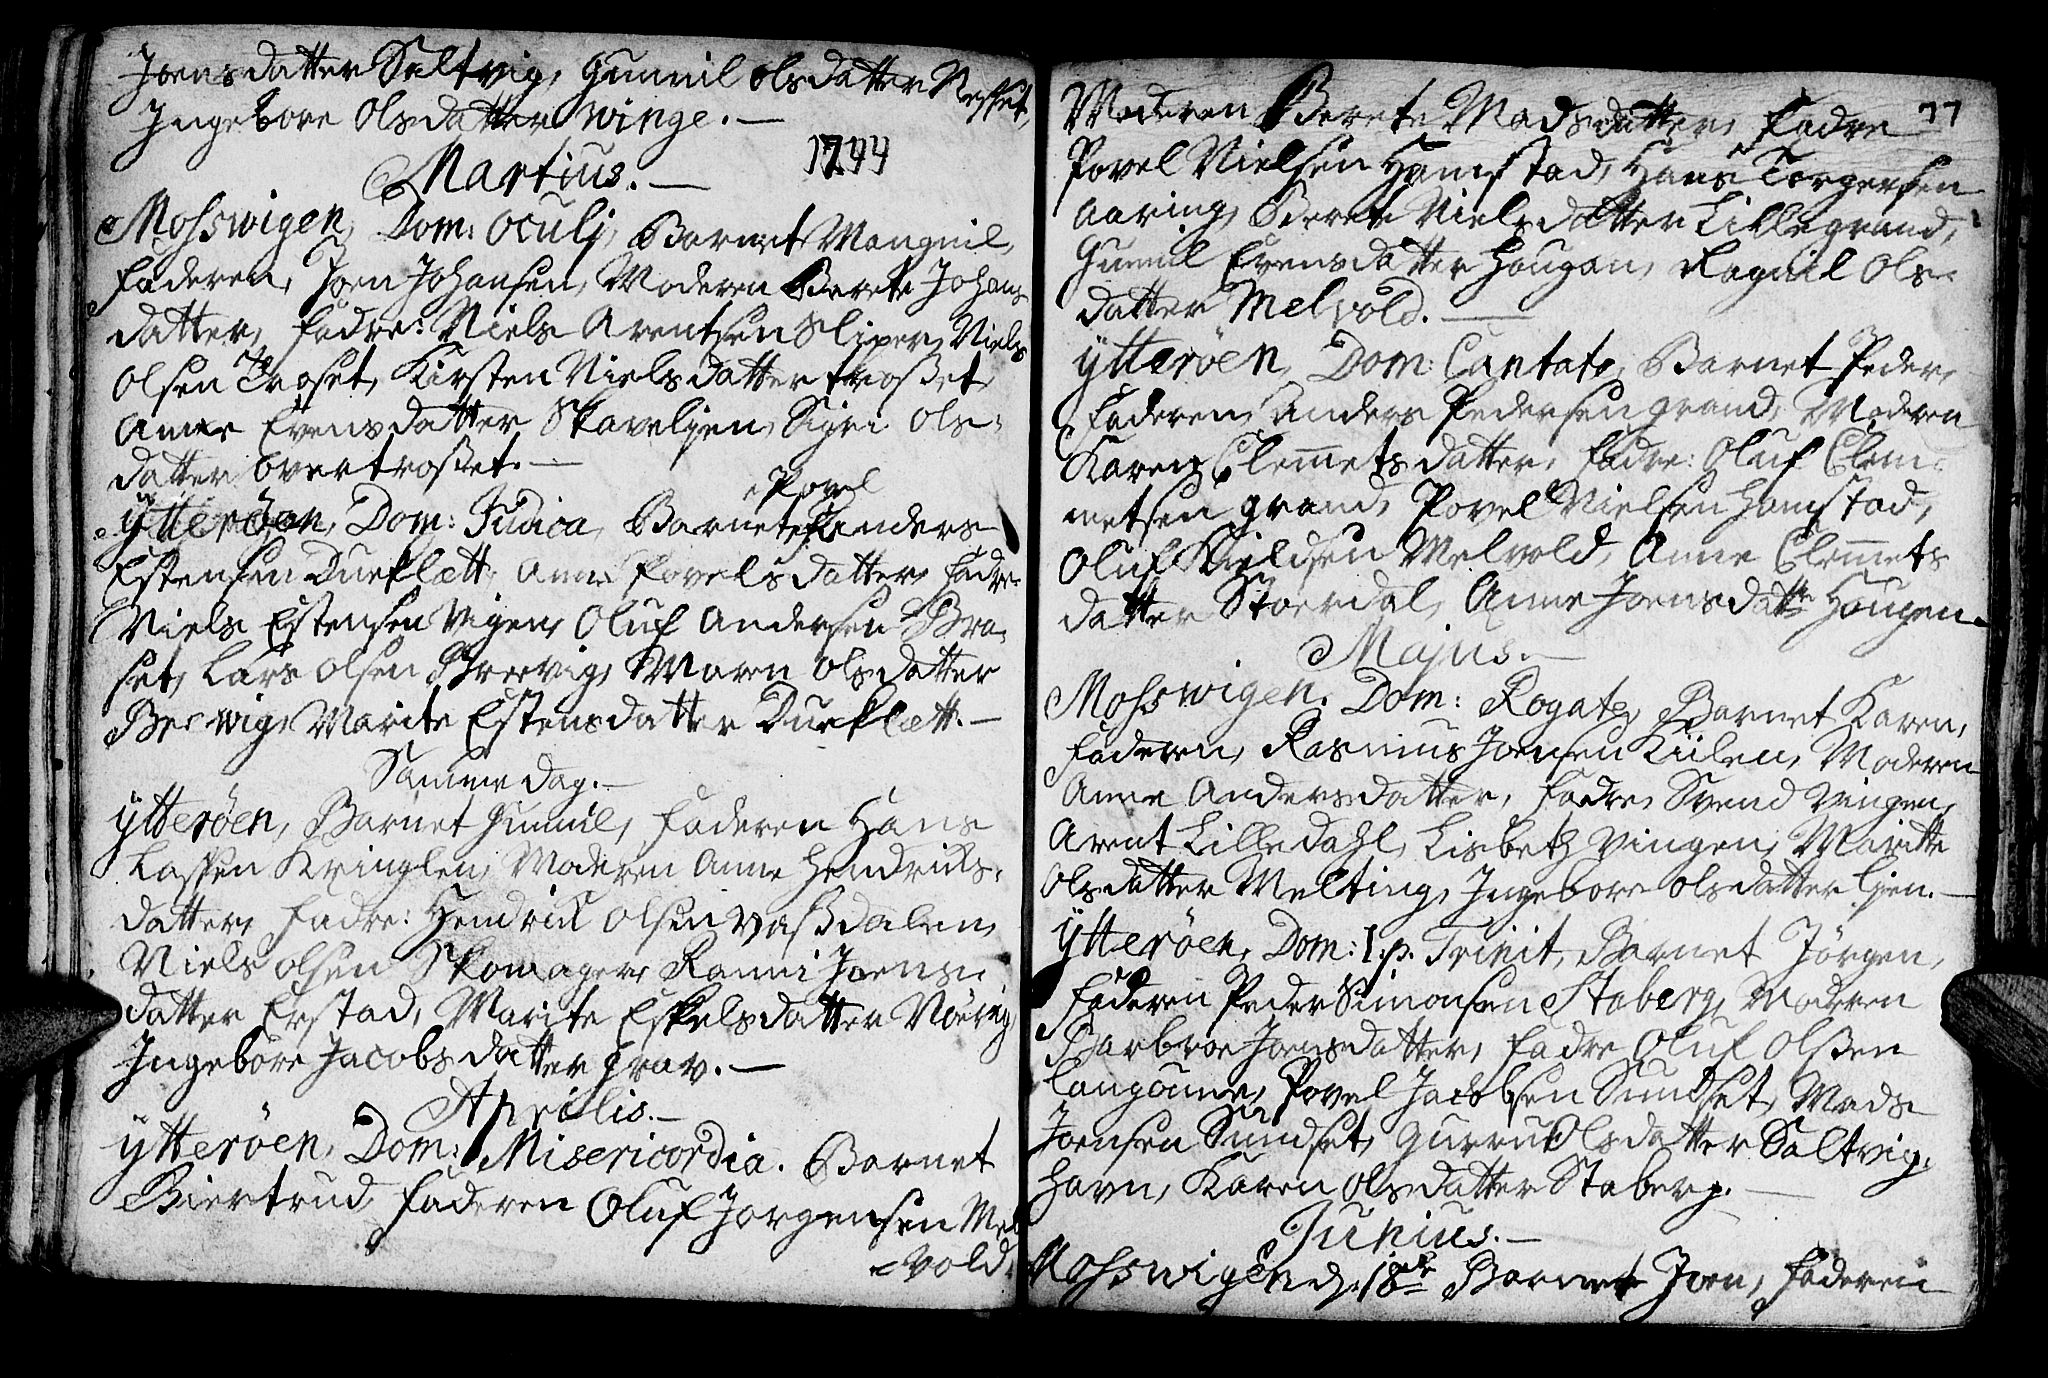 Joensdatter Saltvig, Gunnil Olsdatter Nesset,
Ingebore Olsdatter Winge. —
1744
Martius. —
Mosswigen, Dom: Oculi, Barnet Mangnil,
Faderen, Joen Johansen, Moderen Berete Johans
datter, Fadre: Niels Arentsen Sliper, Niels
Olsen Troset, Kirsten Nielsdatter Troßet,
Anne Evensdatter Skavelien, Sigri Ols-
datter Overtroßet. —
Ytterøen, Dom: Judica, Barnet Povel Anders
Estensen Dueklætt, Anne Povelsdatter, Fadre
Niels Estensen Vigen, Oluf Andersen Bra-
set, Lars Olsen Breevig, Maren Olsdatter
Beewig, Marite Estensdatter Dueklætt. —
Samme dag. —
Ytterøen, Barnet Gunnil, Faderen Hans
Lassen Kringlen, Moderen Anne Hendrichs-
datter, Fadre: Hendrich Olsen Vaßdalen,
Niels Olsen Skomager, Ranni Joens-
datter Erstad, Marite Eskelsdatter Nøering,
Ingebore Jacobsdatter Grav. —
Aprilis. —
Ytterøen, Dom: Misericordia. Barnet
Biertrud, Faderen Oluf Jorgensen Mel
-vold,
77
Moderen Berete Madsdatter, Fadre
Povel Nielsen Hamstad, Hans Torgersen
Aaring, Berete Nielsdatter Lillegrand,
Gunnil Evensdatter Hougan, Ragnil Ols-
datter Melvold. —
Ytterøen, Dom: Cantate, Barnet Peder,
Faderen, Anders Pedersen Grand, Moderen
Karen Clemmetsdatter, Fadre: Oluf Clem-
metsen Grand, Povel Nielsen Hamstad,
Oluf Kieldsen Melvold, Anne Clemmets
datter Stoerdal, Anne Joensdatter Hougen.
Majus. —
Mosswigen, Dom: Rogate, Barnet Karen,
Faderen, Rasmus Joensen Kiilen, Moderen
Anne Andersdatter, Fadre, Svend Vingen,
Arent Lilledahl, Lisbeth Vingen, Maritte
Olsdatter Melting, Ingebore Olsdatter Lien. —
Ytterøen, Dom: 1. p. Trinit, Barnet Jörgen,
Faderen Peder Simonsen Staberg, Moderen
Barbroe Joensdatter, Fadre Oluf Olßen
Langøune, Povel Jacobsen Sundset, Mads
Joensen Sundset, Gurru Olsdatter Saltvig-
havn, Karen Olsdatter Staberg. —
Junius. —
Mosswigen d. 18de Barnet Joen, Faderen